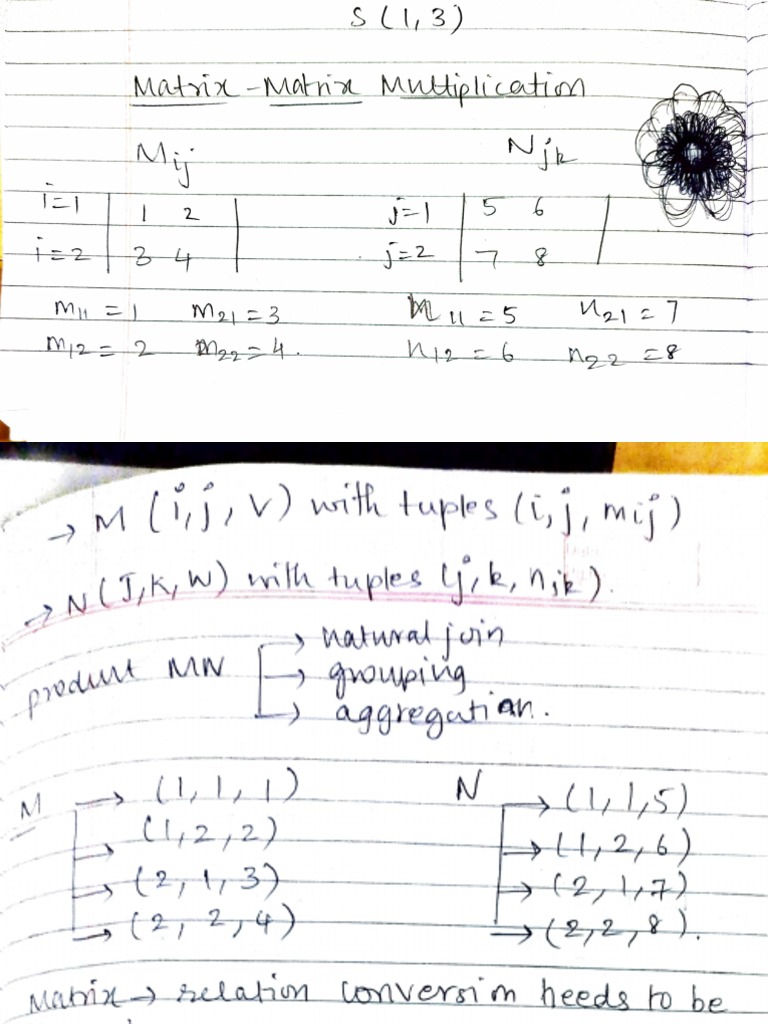 S (1, 3)
Matrix - Matrix Multiplication
Mij Njk
i=1 1 2 j=1 5 6
i=2 3 4 j=2 7 8
m11 = 1 m21 = 3 n11 = 5 n21 = 7
m12 = 2 m22 = 4. n12 = 6 n22 = 8
→ M (i, j, V) with tuples (i, j, mij)
→ N (J, K, W) with tuples (j, k, njk).
→ natural join
product MN → grouping
→ aggregation.
M → (1, 1, 1) N → (1, 1, 5)
→ (1, 2, 2) → (1, 2, 6)
→ (2, 1, 3) → (2, 1, 7)
→ (2, 2, 4) → (2, 2, 8).
Matrix → relation conversion needs to be